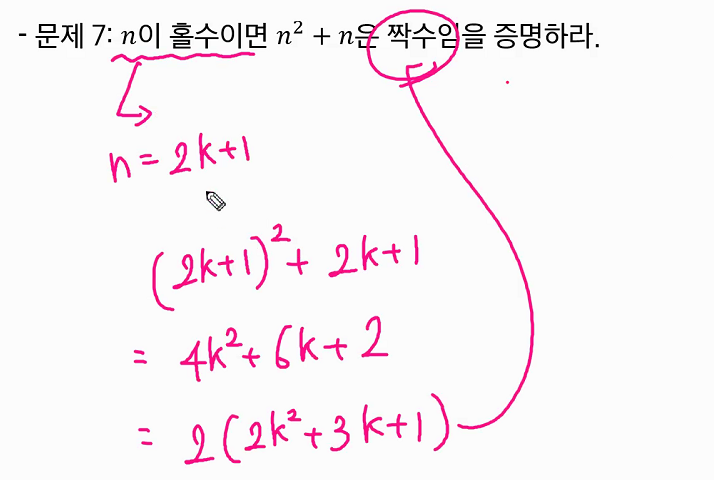 - 문제 7: n이 홀수이면 n² + n은 짝수임을 증명하라.
n = 2k+1
(2k+1)² + 2k+1
= 4k² + 6k + 2
= 2(2k² + 3k + 1)